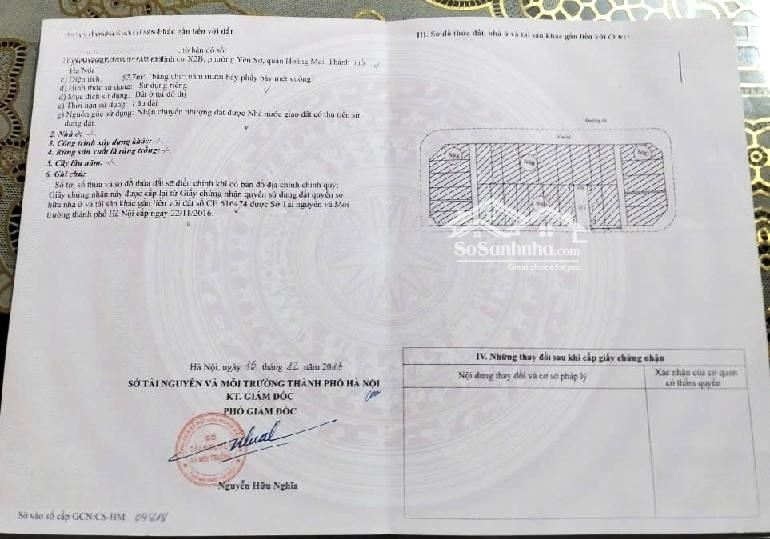 tờ bản đồ số:
định cư X2B, phường Yên Sở, quận Hoàng Mai, Thành phố
Hà Nội
c) Diện tích: 57,7m² (bằng chữ: năm mươi bảy phẩy bảy mét vuông)
d) Hình thức sử dụng: Sử dụng riêng
đ) Mục đích sử dụng: Đất ở tại đô thị
e) Thời hạn sử dụng: Lâu dài
g) Nguồn gốc sử dụng: Nhận chuyển nhượng đất được Nhà nước giao đất có thu tiền sử
dụng đất
2. Nhà ở: -/-
3. Công trình xây dựng khác: -/-
4. Rừng sản xuất là rừng trồng: -/-
5. Cây lâu năm: -/-
6. Ghi chú:
Số tờ, số thửa và sơ đồ thửa đất sẽ điều chỉnh khi có bản đồ địa chính chính quy;
Giấy chứng nhận này được cấp lại từ Giấy chứng nhận quyền sử dụng đất quyền sở
hữu nhà ở và tài sản khác gắn liền với đất số được Sở Tài nguyên và Môi
trường thành phố Hà Nội cấp ngày 22/11/2016.
Hà Nội, ngày 15 tháng 12 năm
SỞ TÀI NGUYÊN VÀ MÔI TRƯỜNG THÀNH PHỐ HÀ NỘI
KT. GIÁM ĐỐC
PHÓ GIÁM ĐỐC
SỞ
TÀI NGUYÊN
VÀ MÔI TRƯỜNG
Nguyễn Hữu Nghĩa
Số vào sổ cấp GCN:CS-HM 04818
III. Sơ đồ thửa đất, nhà ở và tài sản khác gắn liền với đất
SoSanhnha.com
Great choice for you
IV. Những thay đổi sau khi cấp giấy chứng nhận
Nội dung thay đổi và cơ sở pháp lý
Xác nhận của cơ quan
có thẩm quyền